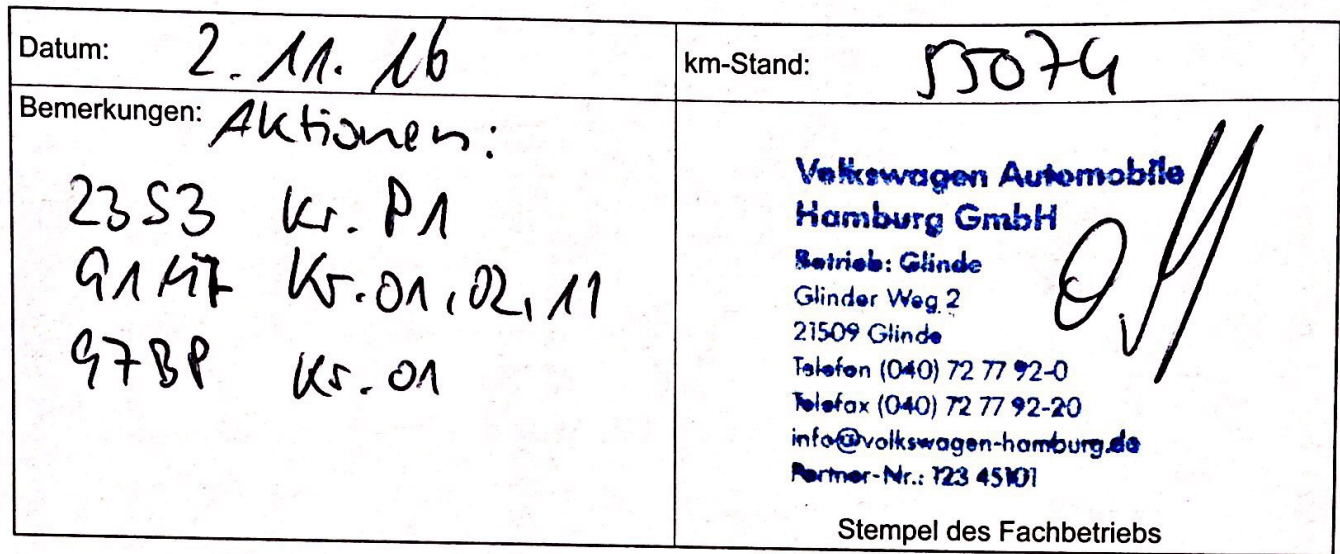 Datum: 2.11.16
km-Stand: 55074
Bemerkungen: Aktionen:
23S3 Kr. P1
91M7 Kr. 01, 02, 11
97BP Kr. 01
Volkswagen Automobile
Hamburg GmbH
Betrieb: Glinde
Glinder Weg 2
21509 Glinde
Telefon (040) 72 77 92-0
Telefax (040) 72 77 92-20
info@volkswagen-hamburg.de
Partner-Nr.: 123 45101
Stempel des Fachbetriebs